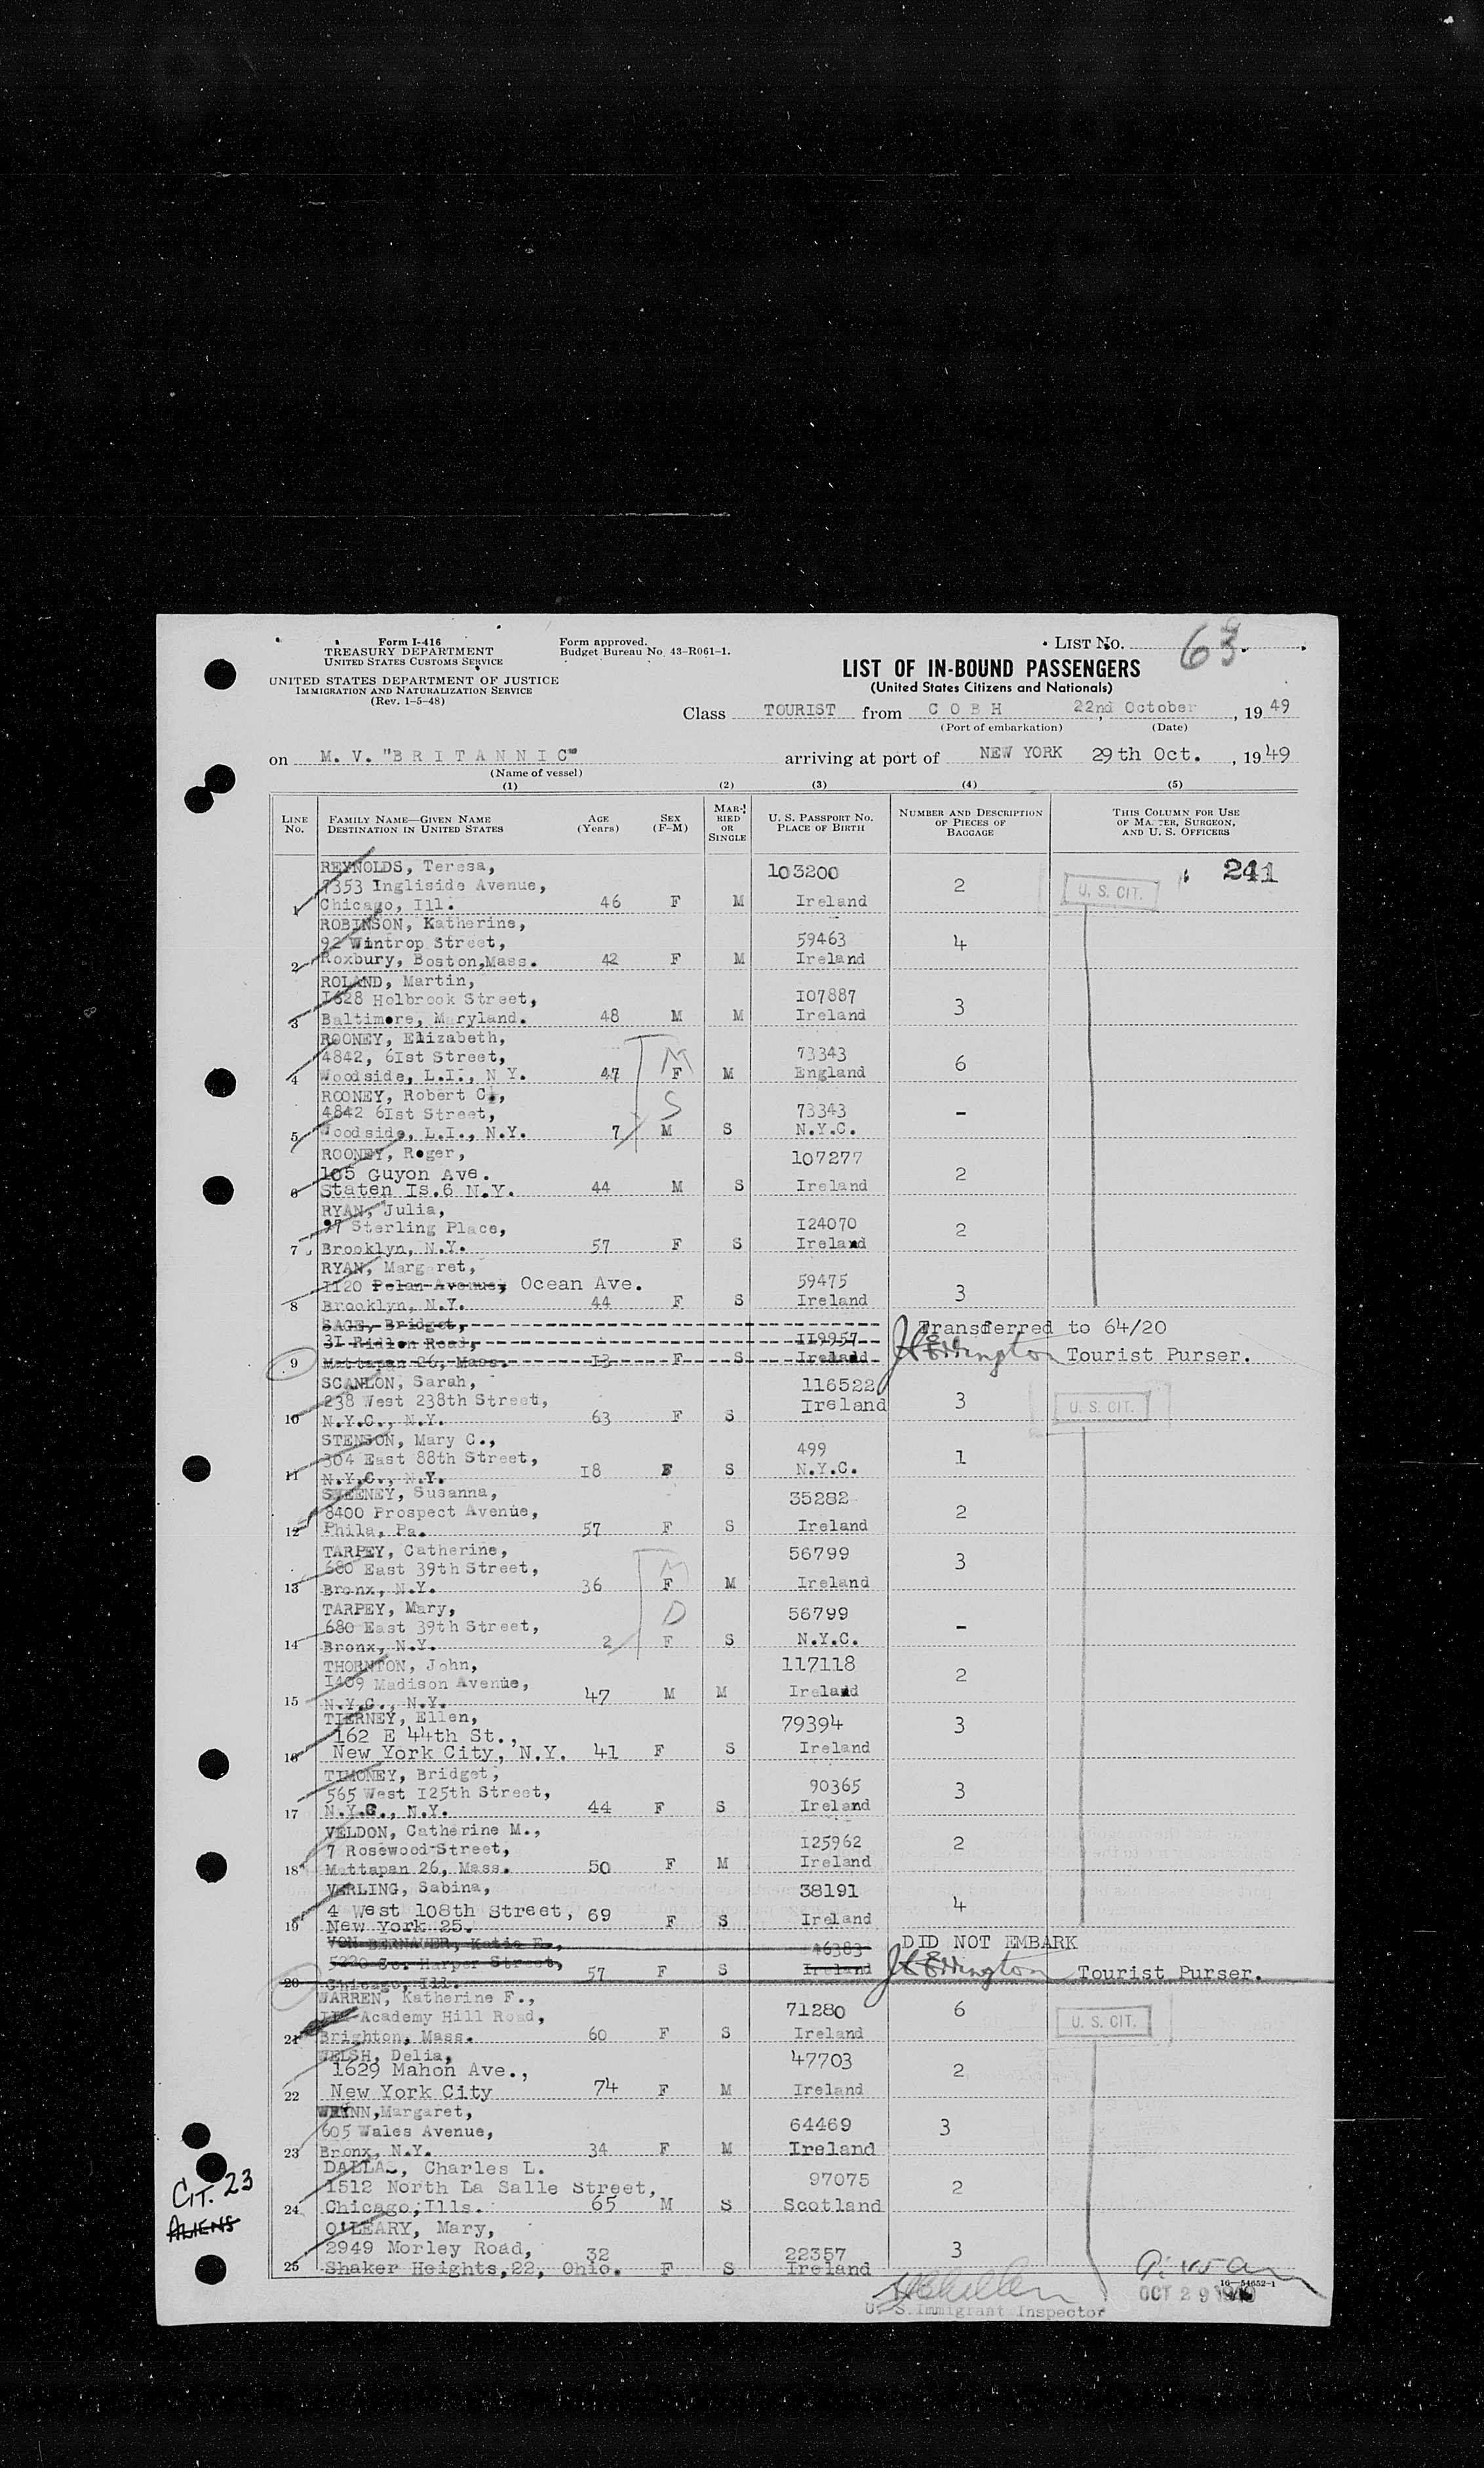 Form I-416
TREASURY DEPARTMENT
UNITED STATES CUSTOMS SERVICE
UNITED STATES DEPARTMENT OF JUSTICE
IMMIGRATION AND NATURALIZATION SERVICE
(Rev. 1-5-48)
Form approved.
Budget Bureau No. 43-R061-1.
LIST NO. 63
LIST OF IN-BOUND PASSENGERS
(United States Citizens and Nationals)
Class TOURIST from COBH 22nd October, 1949
(Port of embarkation) (Date)
on M. V. "BRITANNIC" arriving at port of NEW YORK 29th Oct., 1949
(Name of vessel)
(1) (2) (3) (4) (5)
LINE NO. FAMILY NAME—GIVEN NAME DESTINATION IN UNITED STATES AGE (Years) SEX (F-M) MARRIED OR SINGLE U. S. PASSPORT NO. PLACE OF BIRTH NUMBER AND DESCRIPTION OF PIECES OF BAGGAGE THIS COLUMN FOR USE OF MASTER, SURGEON, AND U. S. OFFICERS
REYNOLDS, Teresa, 103200 241
7353 Ingliside Avenue, 2 U. S. CIT.
1 Chicago, Ill. 46 F M Ireland
ROBINSON, Katherine,
92 Wintrop Street, 59463 4
2 Roxbury, Boston,Mass. 42 F M Ireland
ROLAND, Martin,
1628 Holbrook Street, 107887 3
3 Baltimore, Maryland. 48 M M Ireland
ROONEY, Elizabeth,
4842, 61st Street, 73343 6 M
4 Woodside, L.I., N Y. 47 F M England
ROONEY, Robert C.,
4842 61st Street, 73343 - S
5 Woodside, L.I., N.Y. 7 M S N.Y.C.
ROONEY, Roger, 107277
105 Guyon Ave. 2
6 Staten Is.6 N.Y. 44 M S Ireland
RYAN, Julia,
97 Sterling Place, 124070 2
7 Brooklyn, N.Y. 57 F S Ireland
RYAN, Margaret,
1120 Pelan Avenue, Ocean Ave. 59475 3
8 Brooklyn, N.Y. 44 F S Ireland
SAGE, Bridget, Transferred to 64/20
31 Ridlon Road, 119957
9 Mattapan 26, Mass. 13 F S Ireland J L Errington Tourist Purser.
SCANLON, Sarah, 116522
238 West 238th Street, Ireland 3 U. S. CIT.
10 N.Y.C., N.Y. 63 F S
STENSON, Mary C.,
304 East 88th Street, 499 1
11 N.Y.C., N.Y. 18 F S N.Y.C.
SWEENEY, Susanna, 35282
8400 Prospect Avenue, 2
12 Phila, Pa. 57 F S Ireland
TARPEY, Catherine, 56799 3
680 East 39th Street, M
13 Bronx, N.Y. 36 F M Ireland
TARPEY, Mary, 56799 D
680 East 39th Street, -
14 Bronx, N.Y. 2 F S N.Y.C.
THORNTON, John, 117118
1409 Madison Avenue, 2
15 N.Y.C., N.Y. 47 M M Ireland
TIERNEY, Ellen, 79394 3
162 E 44th St.,
16 New York City, N.Y. 41 F S Ireland
TIMONEY, Bridget,
565 West 125th Street, 90365 3
17 N.Y.C., N.Y. 44 F S Ireland
VELDON, Catherine M.,
7 Rosewood Street, 125962 2
18 Mattapan 26, Mass. 50 F M Ireland
VERLING, Sabina, 38191
4 West 108th Street, 69 4
19 New York 25. F S Ireland
VON BERNAUER, Katie E., 46383 DID NOT EMBARK
So. Harper Street, Ireland
20 Chicago, Ill. 57 F S J L Errington Tourist Purser.
WARREN, Katherine F., 71280 6
Academy Hill Road, U. S. CIT.
21 Brighton, Mass. 60 F S Ireland
WELSH, Delia, 47703
1629 Mahon Ave., 2
22 New York City 74 F M Ireland
WRYNN,Margaret,
605 Wales Avenue, 64469 3
23 Bronx, N.Y. 34 F M Ireland
DALLAS, Charles L. 97075
1512 North La Salle Street, 2
24 Chicago,Ills. 65 M S Scotland
O'LEARY, Mary,
2949 Morley Road, 32 22357 3
25 Shaker Heights,22, Ohio. F S Ireland
CIT. 23
ALIENS
U. S. Immigrant Inspector
16—54652-1
OCT 29 1949